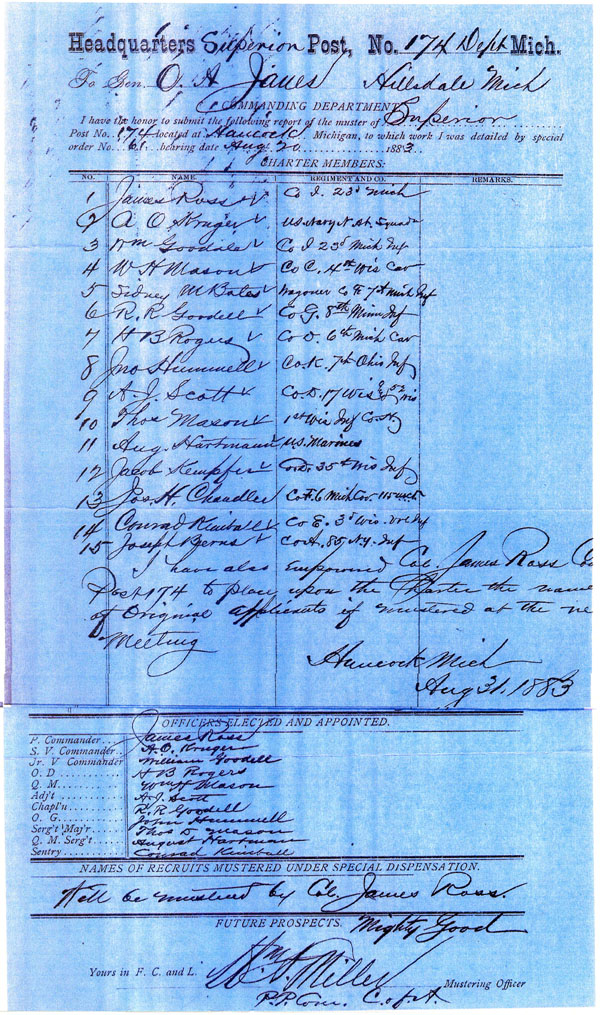 Headquarters Superion Post, No. 174 Dept Mich.
To Gen. O. A. Janes Hillsdale Mich
COMMANDING DEPARTMENT
I have the honor to submit the following report of the muster of Superior
Post No. 174 located at Hancock Michigan, to which work I was detailed by special
order No. 61 bearing date Aug 20 1883
CHARTER MEMBERS:
NO. NAME REGIMENT AND CO. REMARKS.
1 James Ross Co I. 23d Mich
2 A O Kruger US Navy N. At. Squadn
3 Wm Goodale Co I 23d Mich Inf
4 W H Mason Co C. 4th Wis Cav
5 Sidney M Bates Wagoner Co E 7th Mich Inf
6 R. R Goodell Co G. 8th Minn Inf
7 H B Rogers Co D. 6th Mich Cav
8 Jno Hummell Co. K. 7th Ohio Inf
9 A. J. Scott Co. D. 17 Wis & 52 Wis
10 Thos Mason 1st Wis Inf Co.
11 Aug. Hartmann US. Marines
12 Jacob Kempfer Co D. 35th Wis Inf
13 Jos. H. Chandler Co F. 6 Mich Cav.
14 Conrad Kimball Co E. 3d Wis. Vol Inf
15 Joseph Berns Co A. 85 N.Y. Inf
I have also empowered Com. James Ross
Post 174 to place upon the Charter the name
of original applicants if mustered at the ne
Meeting
Hancock Mich
Aug 31, 1883
OFFICERS ELECTED AND APPOINTED.
P. Commander James Ross
S. V. Commander A. O. Kruger
Jr. V Commander William Goodell
O. D H B Rogers
Q. M. Wm H Mason
Adj't A. J. Scott
Chapl'n R. R Goodell
O. G. John Hummell
Serg't Maj'r Thos D Mason
Q. M. Serg't August Hartmann
Sentry Conrad Kimball
NAMES OF RECRUITS MUSTERED UNDER SPECIAL DISPENSATION.
Will be mustered by Com James Ross.
FUTURE PROSPECTS. Mighty Good
Yours in F. C. and L. Wm D. Miller Mustering Officer
P. P. Com. C. of A.